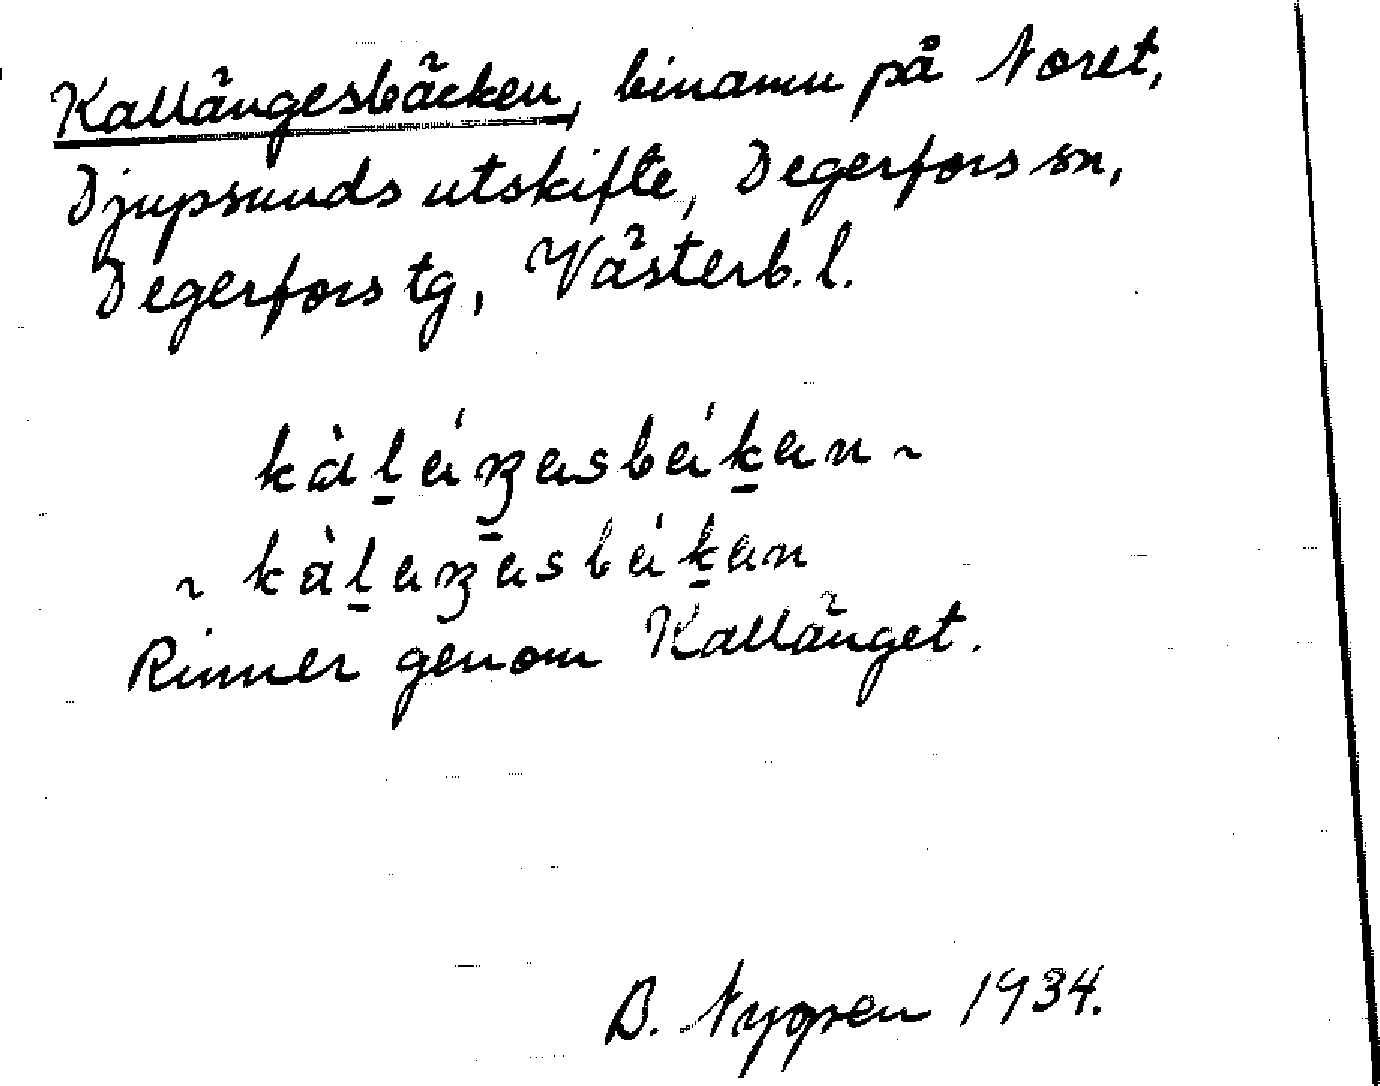 Kallängesbäcken, binamn på Noret,
Djupsunds utskifte, Degerfors sn,
Degerfors tg, Västerb. l.
kàḻáŋasbáḵan ~
~ kàḻaŋasbáḵan
Rinner genom Kallänget.
B. 1934.